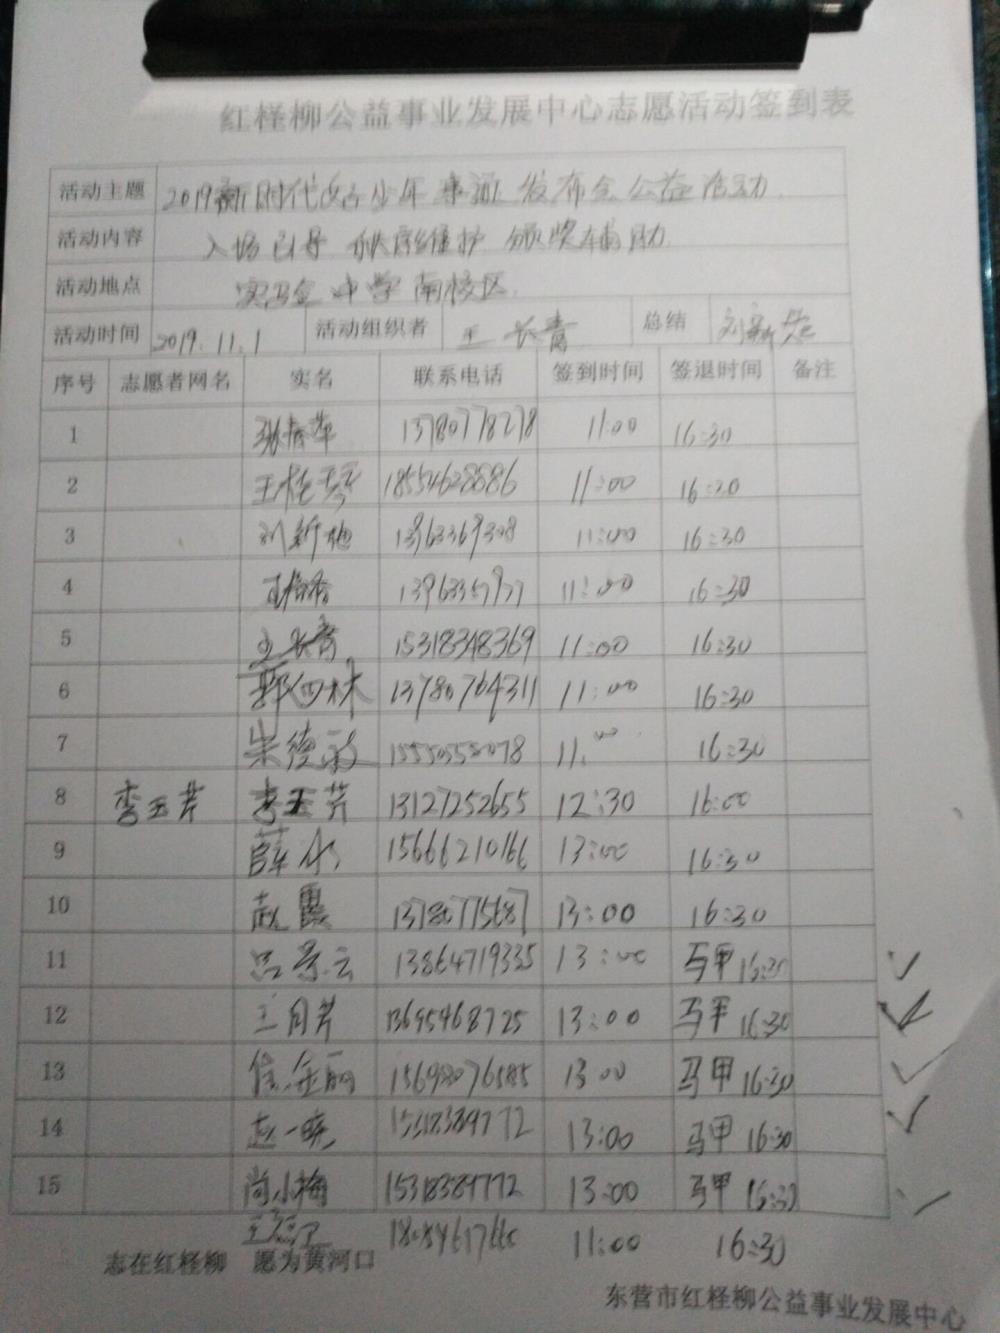 红柽柳公益事业发展中心志愿活动签到表
活动主题 2019新时代好少年 发布会公益活动
活动内容 入场引导 秩序维护 颁奖辅助
活动地点 实验 中学 南校区
活动时间 2019.11.1 活动组织者 王长青 总结
序号 志愿者网名 实名 联系电话 签到时间 签退时间 备注
1 13780778278 11:00 16:30
2 王桂琴 18554628886 11:00 16:30
3 刘新梅 13963369308 11:00 16:30
4 11:00 16:30
5 王长青 15318348369 11:00 16:30
6 郭四林 13780764311 11:00 16:30
7 宋德 15550555078 11:00 16:30
8 李玉芹 李玉芹 13127252655 12:30 16:00
9 薛 15666210166 13:00 16:30
10 赵霞 13780775687 13:00 16:30
11 吕景云 13864719335 13:00 马甲 16:30
12 王月芹 13695468725 13:00 马甲 16:30
13 金丽 15698076585 13:00 马甲 16:30
14 赵一 15318389772 13:00 马甲 16:30
15 尚小梅 15318389772 13:00 马甲 16:30
11:00 16:30
志在红柽柳 愿为黄河口
东营市红柽柳公益事业发展中心